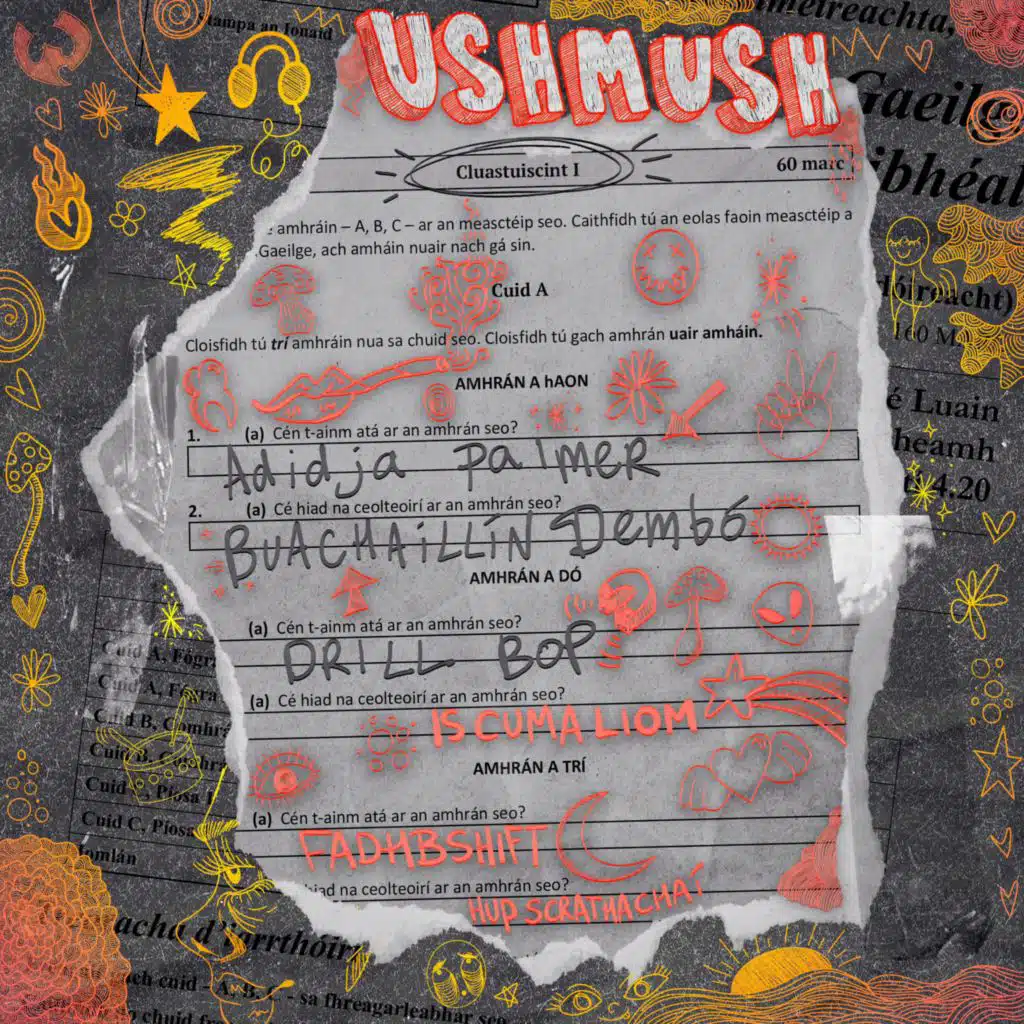 Stampa an Ionaid
USHMUSH
Gaeilge
Cluastuiscint I
60 marc
amhráin – A, B, C – ar an measctéip seo. Caithfidh tú an eolas faoin measctéip a
Gaeilge, ach amháin nuair nach gá sin.
Cuid A
Cloisfidh tú trí amhráin nua sa chuid seo. Cloisfidh tú gach amhrán uair amháin.
160
AMHRÁN A hAON
é Luain
1. (a) Cén t-ainm atá ar an amhrán seo?
Adidja Palmer
4.20
2. (a) Cé hiad na ceolteoirí ar an amhrán seo?
BUACHAILLÍN Dembó
AMHRÁN A DÓ
(a) Cén t-ainm atá ar an amhrán seo?
DRILL BOP
Cuid A, Fógr
(a) Cé hiad na ceolteoirí ar an amhrán seo?
Cuid A, Fógra
IS CUMA LIOM
Cuid B, Comhrá
AMHRÁN A TRÍ
Cuid B, Comhrá
(a) Cén t-ainm atá ar an amhrán seo?
Cuid C, Píosa
FADHBSHIFT
Cuid C, Píosa
Iomlán
hiad na ceolteoirí ar an amhrán seo?
HUP SCRATHACHAÍ
acha d'iarrthóirí
ach cuid - A, B, C - sa fhreagarleabhar seo